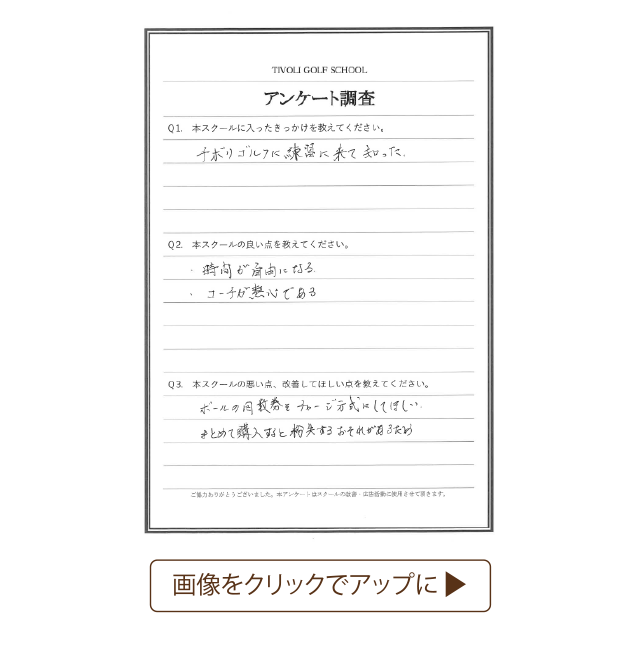 TIVOLI GOLF SCHOOL
アンケート調査
Q1. 本スクールに入ったきっかけを教えてください。
チボリゴルフに練習に来て知った.
Q2. 本スクールの良い点を教えてください。
・時間が自由になる.
・コーチが熱心である
Q3. 本スクールの悪い点、改善してほしい点を教えてください。
ボールの回数券をチャージ方式にしてほしい.
まとめて購入すると紛失するおそれがあるため
ご協力ありがとうございました。本アンケートはスクールの改善・広告活動に使用させて頂きます。
画像をクリックでアップに ▶